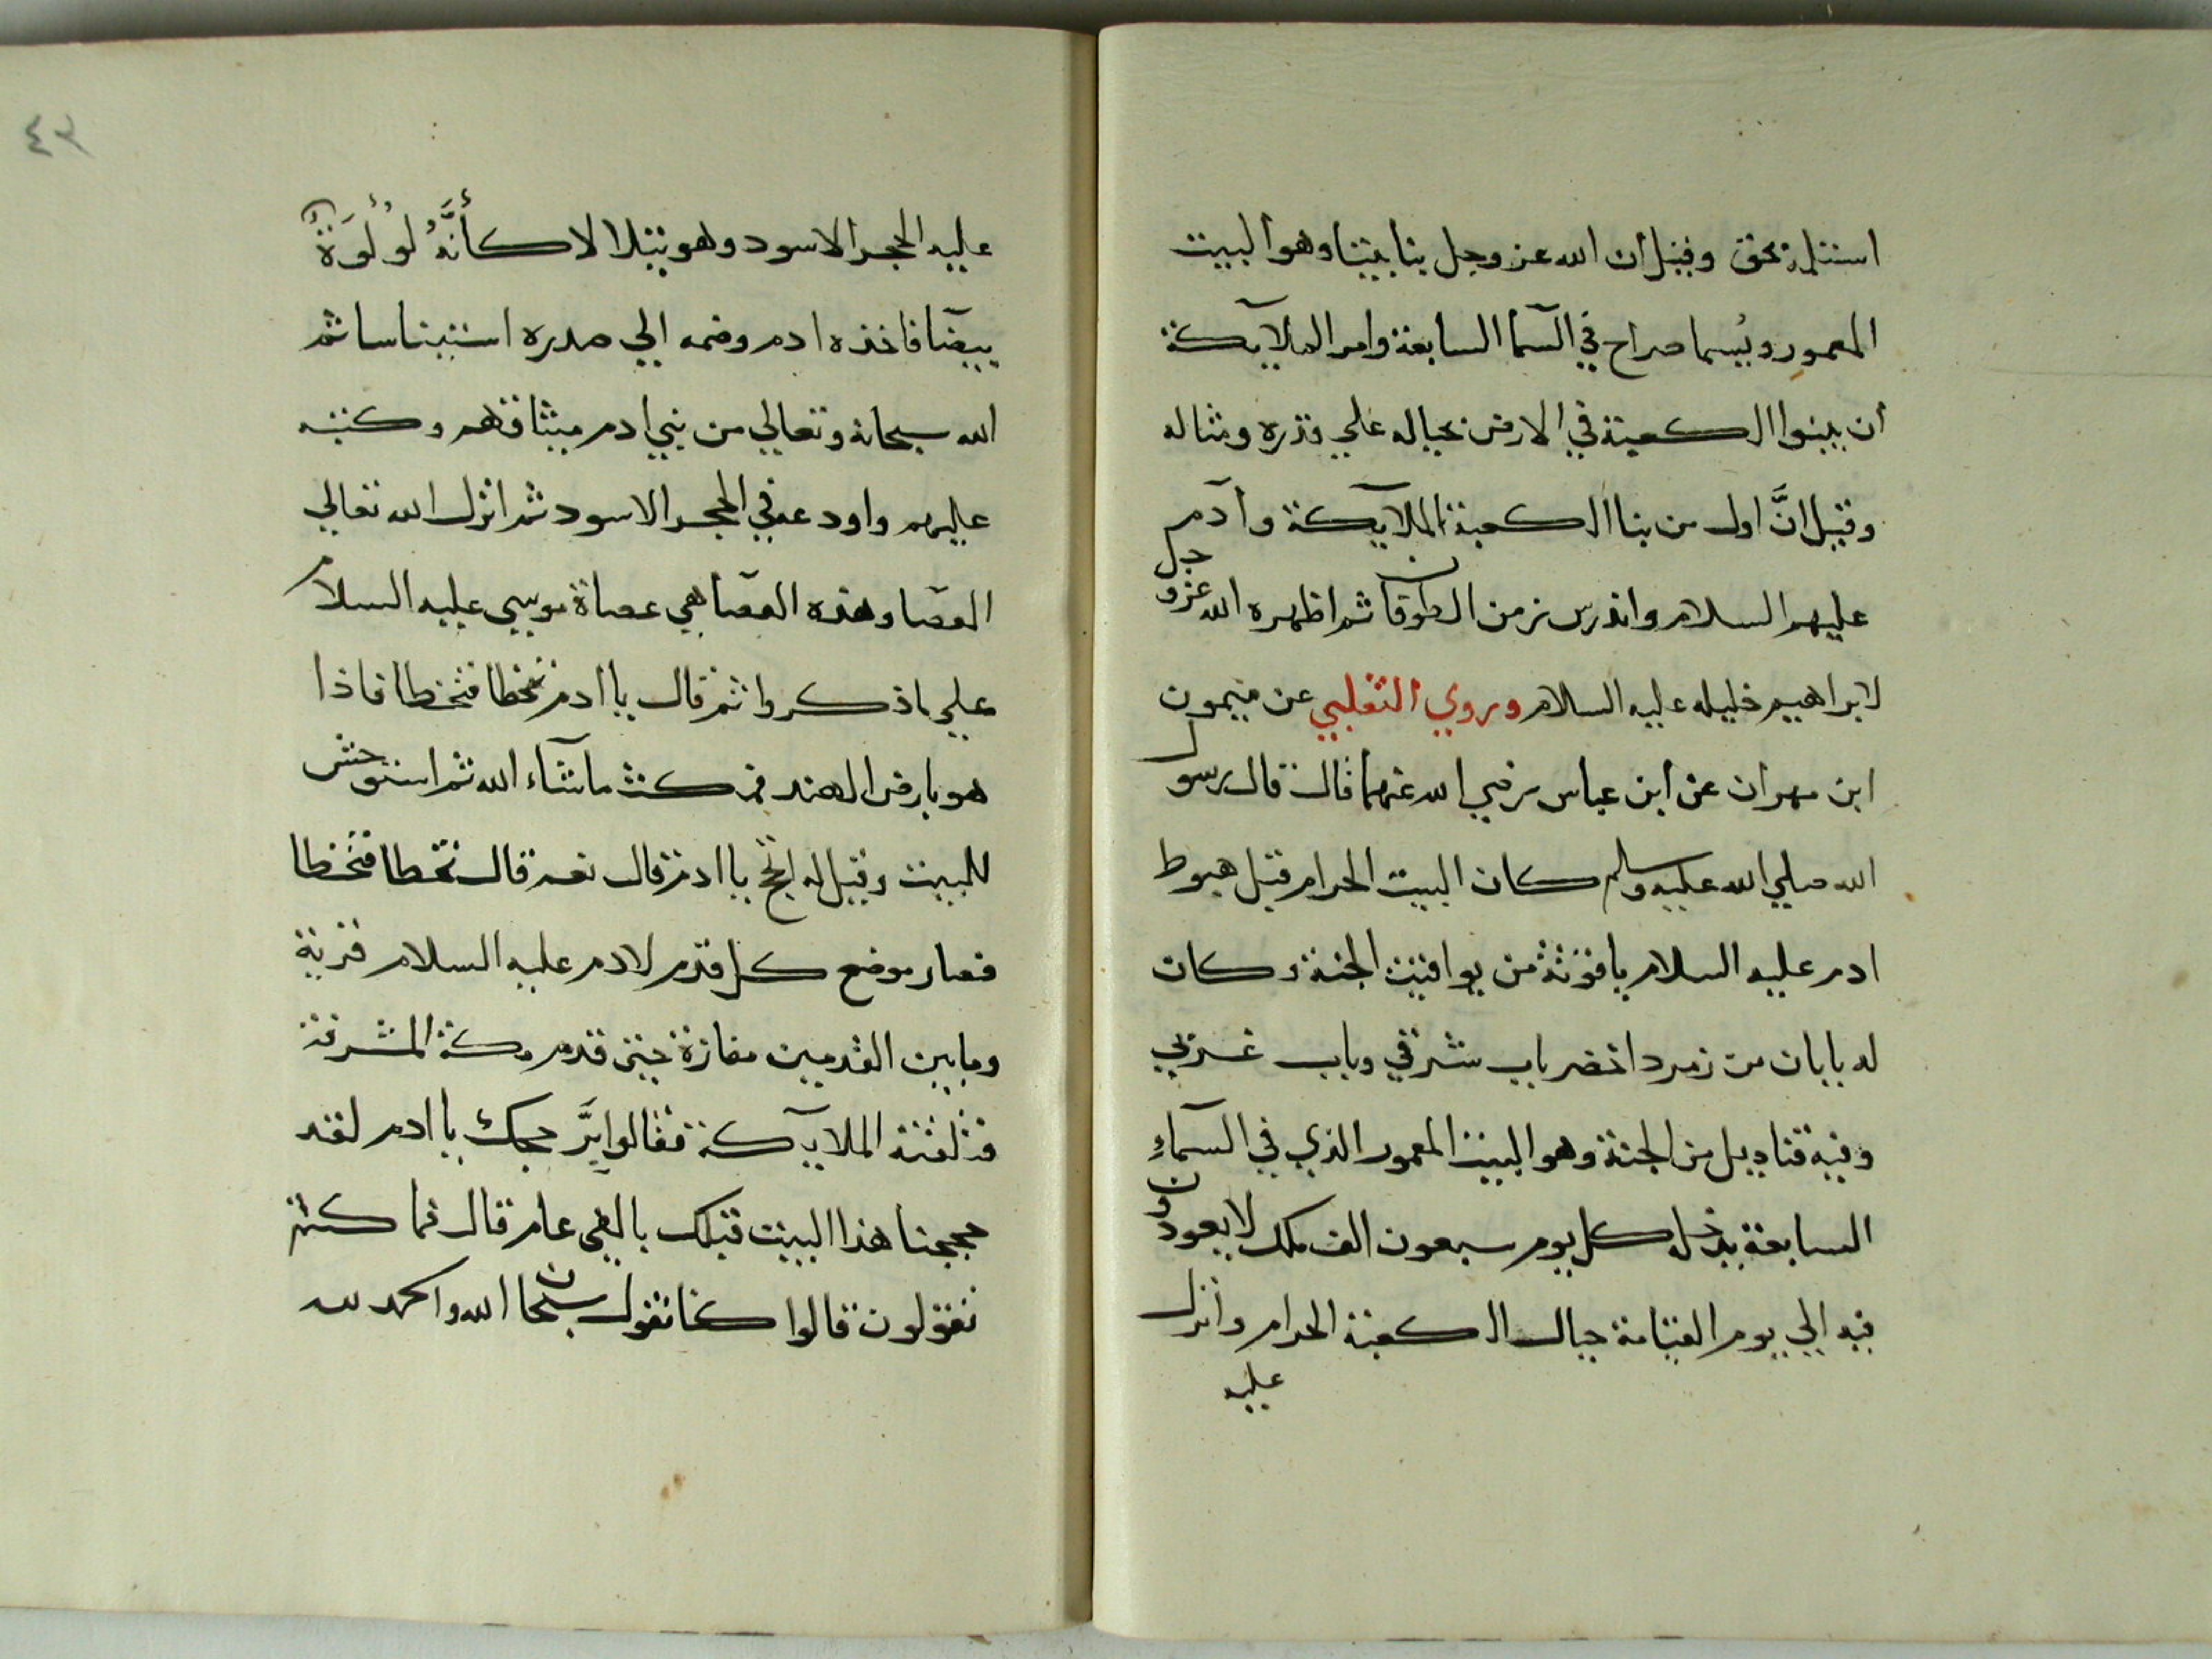 استلمه بحق وقيل أن الله عز وجل بنا بيتا وهو البيت
المعمور ويُسما صراح في السمآ السابعة وامر الملآيكة
أن يبنوا الكعبة في الارض بحياله علي قدره ومثاله
وقيل انَّ اول من بنا الكعبة الملآيكة وآدم
عليهم السلام واندرس زمن الطوفان ثم اظهره الله عز وجل
لابراهيم خليله عليه السلام وروي الثعلبي عن ميمون
ابن مهران عن ابن عباس رضي الله عنهما قال قال رسول
الله صلي الله عليه وسلم كان البيت الحرام قبل هبوط
ادم عليه السلام ياقوتة من يواقيت الجنة وكان
له بابان من زمرد اخضر باب شرقي وباب غربي
وفيه قناديل من الجنة وهو البيت المعمور الذي في السمآءِ
السابعة يدخله كل يوم سبعون الف ملك لا يعودون
فيه الي يوم القيامة حيال الكعبة الحرام وأنزل
عليه
٤٢
عليه الحجر الاسود وهو يتلالا كأنَّهُ لُولُوَةٌ
بيضآ فاخذه ادم وضمه الي صدره استيناسا ثم
الله سبحانه وتعالي من بني ادم ميثاقهم وكتبه
عليهم واودعه في الحجر الاسود ثم انزل الله تعالي
العصا وهذه العصا هي عصاة موسي عليه السلام
علي ما ذكروا ثم قال يا ادم تخطا فتخطا فاذا
هو بارض الهند فمكث ما شآء الله ثم استوحش
للبيت وقيل له احج يا ادم قال نعم قال تخطا فتخطا
فصار موضع كل قدم لادم عليه السلام قرية
وما بين القدمين مفازة حتي قدم مكة المشرفة
فتلقته الملايكة فقالوا برَّ حجك يا ادم لقد
حججنا هذا البيت قبلك بالفي عام قال فما كنتم
تقولون قالوا كنا نقول سبحان الله والحمد لله